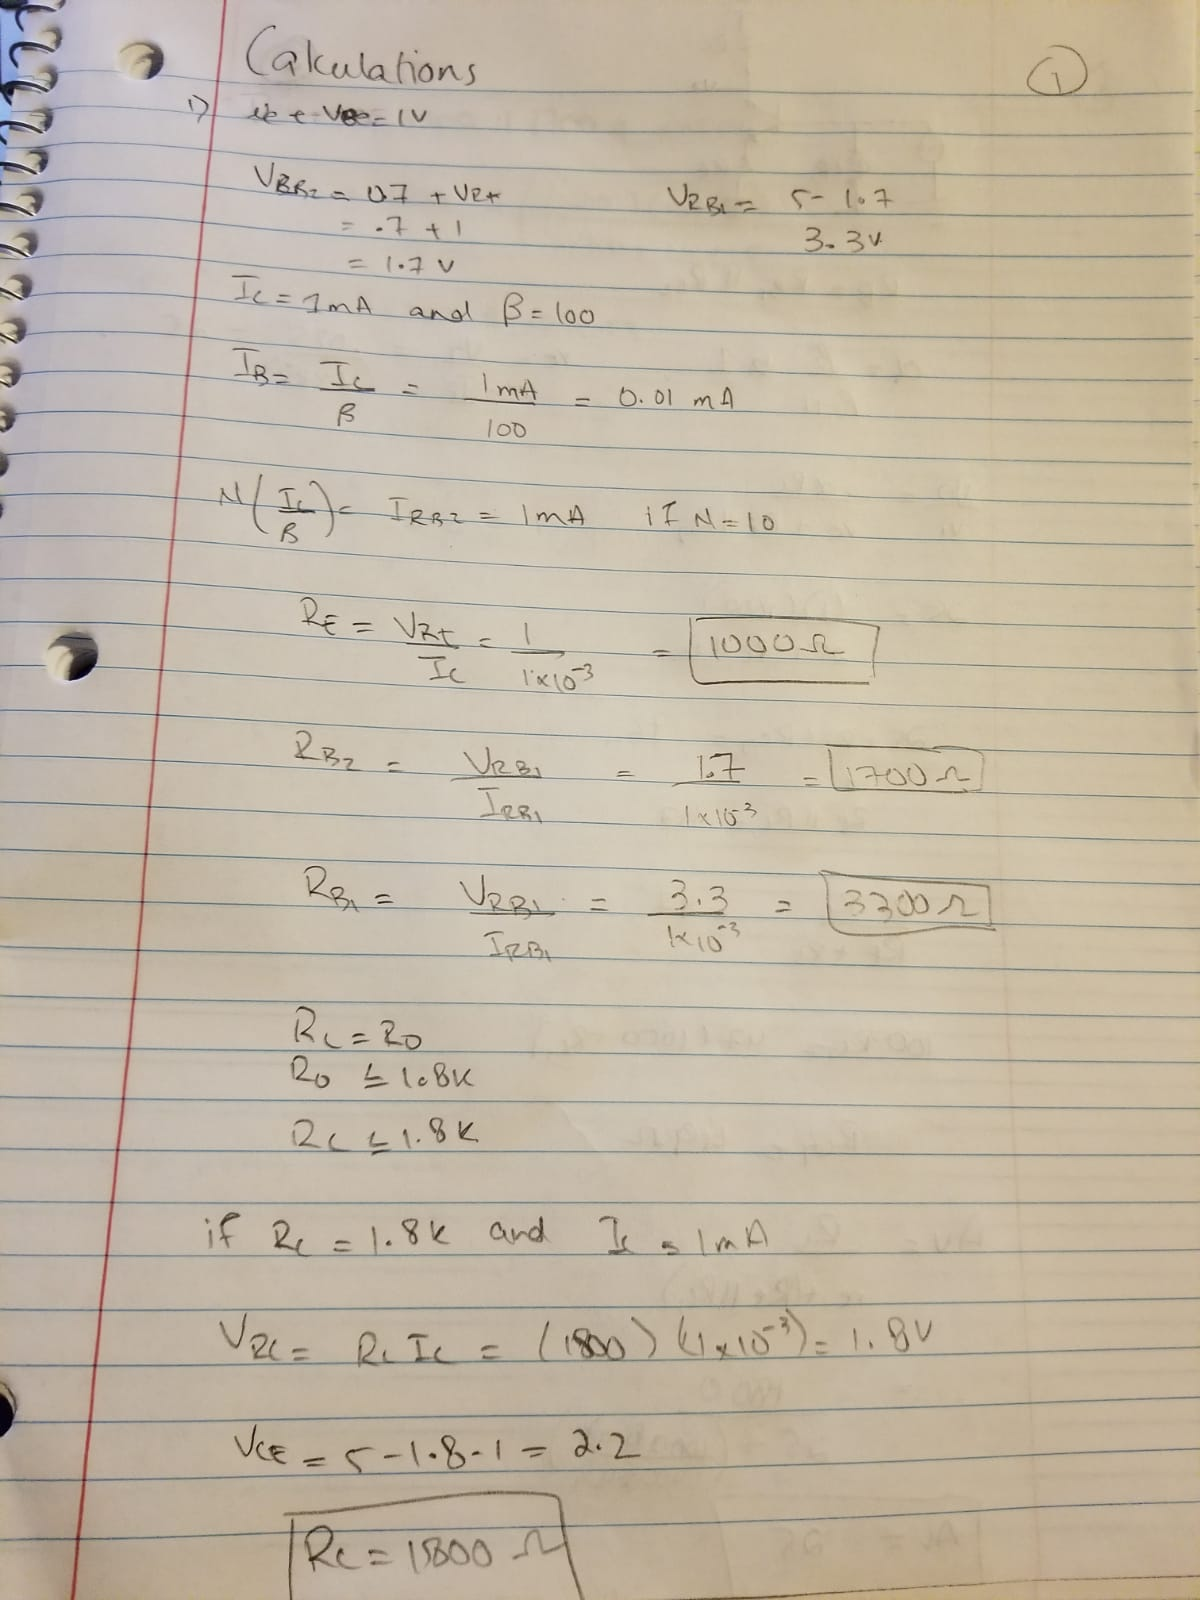 Calculations
1
1) VBE = 1V
VBB2 = 0.7 + VRE
= .7 + 1
= 1.7 V
VRB1 = 5 - 1.7
3.3V
IC = 1mA and β = 100
IB = IC/β = 1mA/100 = 0.01 mA
N(IC/β) = IRB2 = 1mA if N = 10
RE = VRE/IC = 1/1x10^-3 = 1000Ω
RB2 = VRB1/IRB1 = 1.7/1x10^-3 = 1700Ω
RB1 = VRB1/IRB1 = 3.3/1x10^-3 = 3300Ω
RC = RO
RO ≤ 1.8K
RC ≤ 1.8K
if RC = 1.8K and IC = 1mA
VRC = RC IC = (1800)(1x10^-3) = 1.8V
VCE = 5 - 1.8 - 1 = 2.2
RC = 1800 Ω